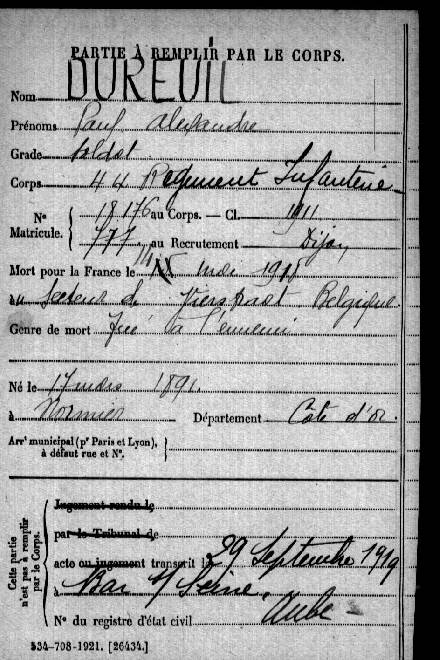 PARTIE À REMPLIR PAR LE CORPS.
Nom DUREUIL
Prénoms Paul Alexandre
Grade soldat
Corps 44 Régiment Infanterie
N° Matricule. 18176 au Corps. — Cl. 1911
777 au Recrutement Dijon
Mort pour la France le 14 mai 1918
à secteur de Vierstraat Belgique
Genre de mort Tué à l'ennemi
Né le 17 mars 1891
à Département Côte d'or.
Arr^t municipal (p^r Paris et Lyon), à défaut rue et N°.
Cette partie n'est pas à remplir par le Corps.
Jugement rendu le
par le Tribunal de
acte ou jugement transcrit le 29 Septembre 1919
à Bar s/ Seine,
Aube
N° du registre d'état civil
534-708-1921. [26434.]